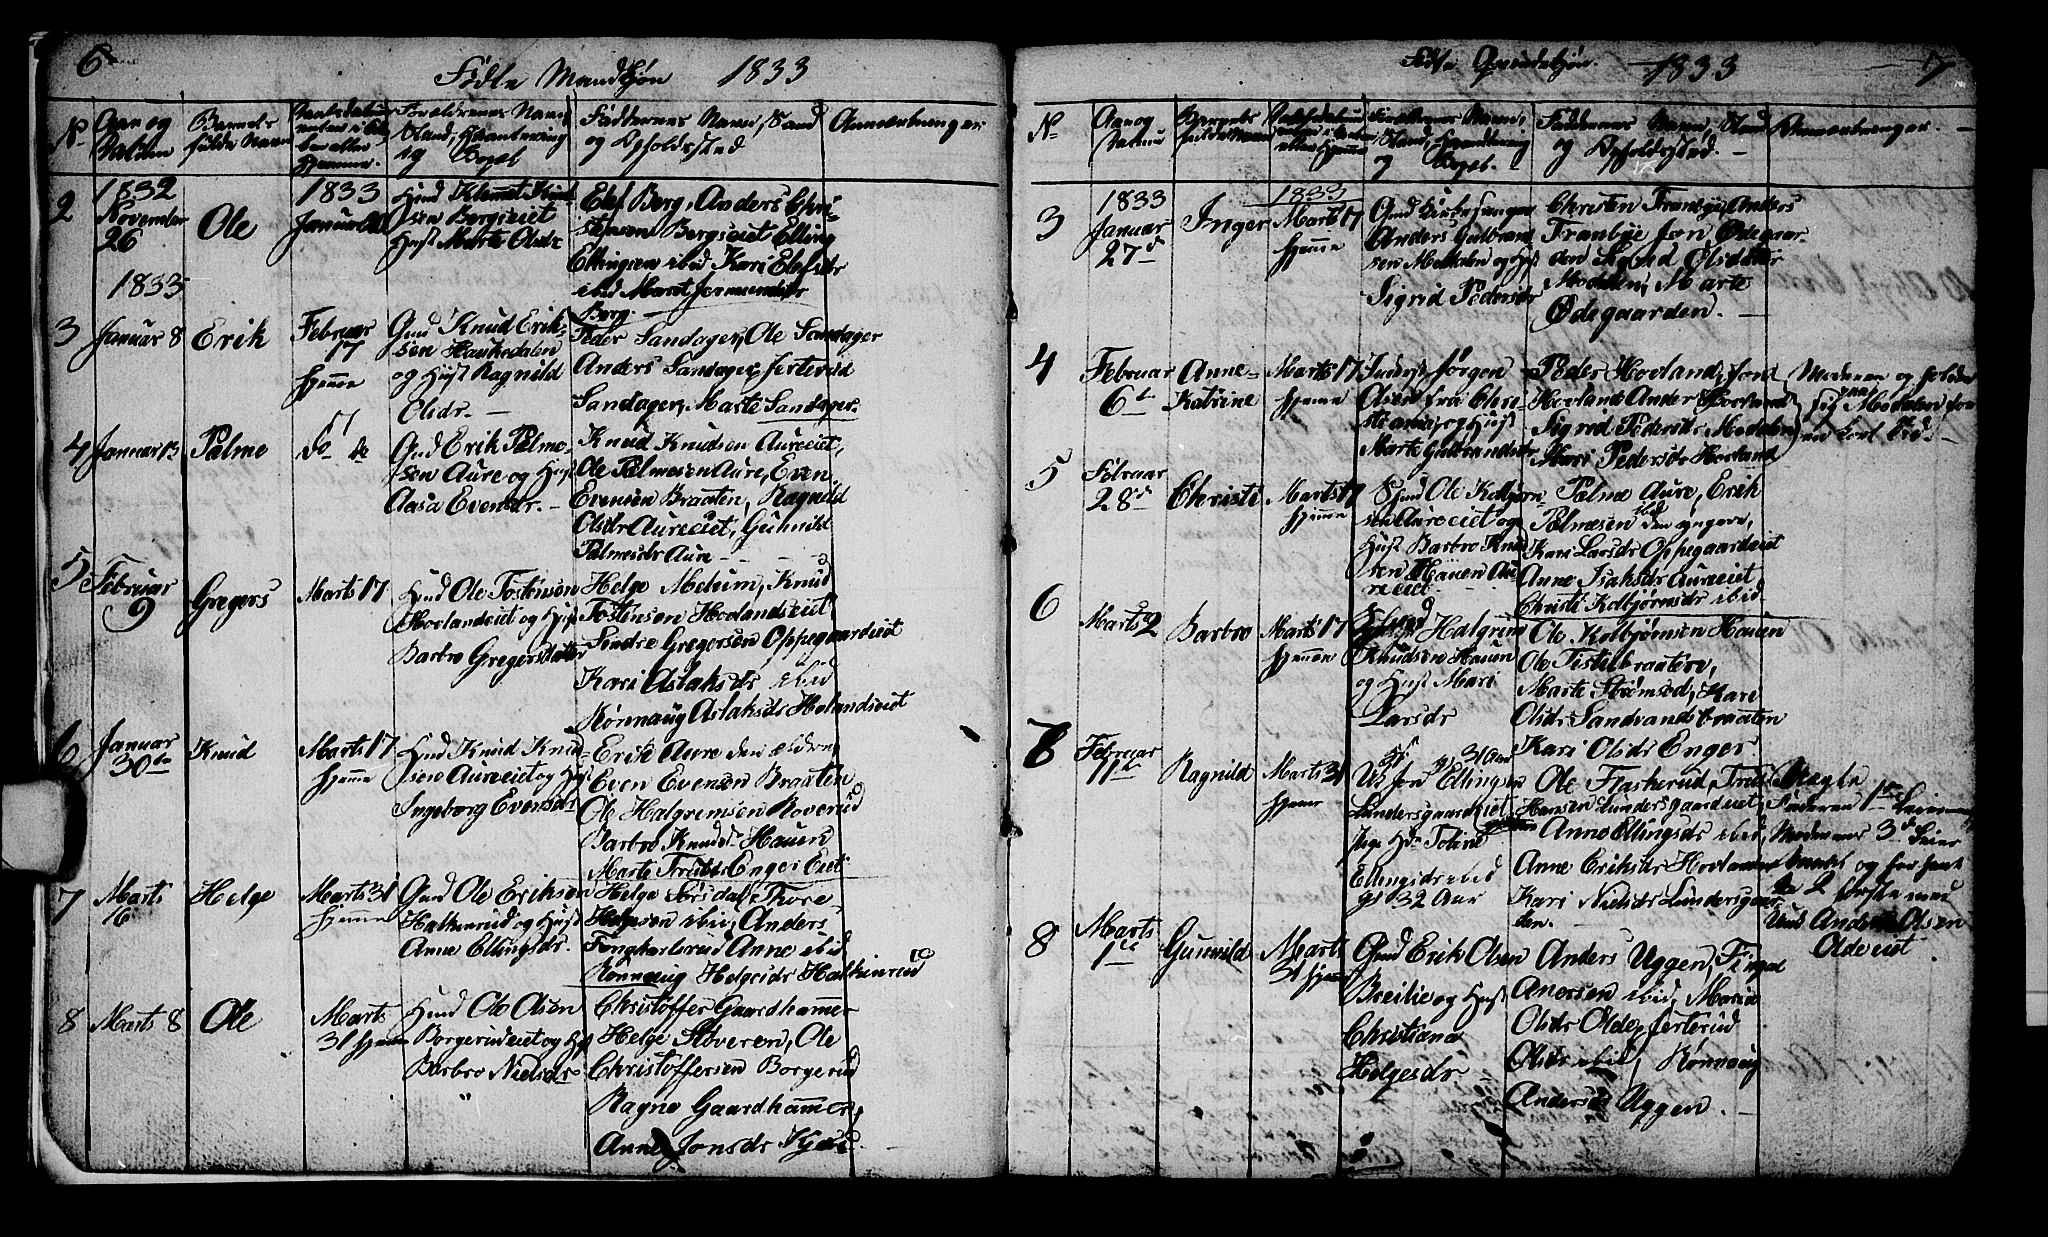 6
Fødte Mandkjøn 1833
No
Aar og
Datum
Barnets
fulde Navn
Forældrenes Navn
Stand, Haandtering
og Bopæl
Faddernes Navn, Stand
og Opholdssted
Anmærkninger
2
1832
November
26
Ole
1833
Januar 20
Huusmd Klemet Knud
sen Bergseiet
Hust Marte Olsdr
Elef Berg, Anders Chri-
stensen Bergseiet Elling
Ellingsen ibid Kari Elefsdr
ibid Marit
Berg.
1833
3
Januar 8
Erik
Februar
17
hjemme
Gmd Knud Erik-
sen Haukedalen
og Hust Ragnild
Olsdr. —
Peder Sandager, Ole Sandager
Anders Sandager, Jertrud
Sandager, Marte Sandager
4
Januar 13
Palme
17
do do
Gmd Erik Palme-
sen Aure og Hust
Aasa Evensdr. —
Knud Knudsen Aureeiet,
Ole Palmesen Aure, Even
Evensen Braaten, Ragnild
Olsdr Aureeiet, Guhnild
Palmesdr Aure —
5
Februar
9
Gregers
Marts 17
Hmd Ole Tostensen
Hovlandeiet og Hust
Barbro Gregersdatter
Helge Melum, Knud
Tostensen Hovlandseiet
Sindre Gregersen Oppegaardeiet
Kari Aslaksdr ibid
Rønnaug Aslaksdr Holandseiet
6
Januar
30te
Knud
Marts 17
hjemme
Hmd Knud Knud
sen Aureeiet og Hust
Ingeborg Evensdr
Erik Aure den ældre
Even Evensen Braaten
Ole Halgremsen Roverud
Barbro Knudsdr Hauen
Marte Truldsdr Enger Eiet
7
Marts
16
Helge
Marts 31
hjemme
Gmd Ole Eriksen
Halkenrud og Hust
Anne Ellingsdr.
Helge Sørsdal, Thore
Helgesen ibid, Anders
Fongkarlsrud Anne ibid
Rønnaug Helgesdr Halkinrud
8
Marts 8
Ole
Marts
31 hjemme
Hmd Ole Olsen
Borgerudeiet og Hust
Barbro Nielsdr
Christoffer Gaardhammer
Helge Støveren, Ole
Christoffersen Borgerud
Ragne Gaardhammer,
Anne Jonsdr
Fødte Qvindekjøn. 1833
7
No
Aar og
Datum
Barnets
fulde Navn
Forældrenes Navn,
Stand, Haandtering
og Bopæl. —
Faddernes Navn, Stand
og Opholdssted. —
Anmærkninger. —
3
1833
Januar
27de
Inger
1833
Marts 17
hjemme
Anders Gulbrand
sen Modalen og Hust
Sigrid Pedersdr
Christen Tranbye, Anders
Tranbye Jon Ødegaar-
den Sigrid Olsdatter
Modalen, Marte
Ødegaarden. —
4
Februar
6te
Anne
Katrine
Marts 17
hjemme
Inderst Jørgen
Olsen fra Chri-
stiania, og Hust
Marte Gulbrandsdr
Peder Hovland, Jord
Hovland Anders Hovland
Sigrid Pedersdr Modalen
Mari Pedersdr Hovland
Moderen opholder
sig paa Modalen for
en kort Tid —
5
Februar
28de
Christi
Marts 17
hjemme
Hmd Ole Kolbjørn-
sen Aureeiet og
Hust Barbro Knud
sen Hauen Au
reeiet
Palme Aure, Erik
Palmesen ibid den yngere,
Kari Larsdr Oppegaardeiet
Anne Isaksdr Aureeiet
Christi Kolbjørnsdr ibid
6
Marts 2
Barbro
Marts 17
hjemme
Halgrim
Knudsen Hauen
og Hust Mari
Larsdr
Ole Kolbjørnsen Hauen
Ole Tistelbraaten,
Marte Strømsod, Kari
Olsdr Sandvandsbraaten
Kari Olsdr Enger
7
Februar
11te
Ragnild
Marts 31
hjemme
Jon Ellingsen
gl 31 Aar
Lundersgaardeiet
Pige Hr Torine
Ellingsdr ibid
gl 32 Aar
Ole Flaskerud, Truls
Hansen Lundersgaardeiet,
Anne Ellingsdr ibid,
Anne Eriksdr Hovland
Kari Nielsdr Lundersgaar
den.
Uægte
Faderen 1te Leiermaal
Moderens 3de Leier
maal og har havt
de 2 første med
Und Anders Olsen
Oldeeiet
8
Marts
1te
Gunnild
Marts
31 hjemme
Gmd Erik Olsen
Breilie og Hust
Christiana
Helgesdr
Anders Uggen, Fingal
Anersen ibid, Maria
Olsdr Olde, Jerterud
Olsdr ibid, Rønnaug
Andersdr Uggen. —